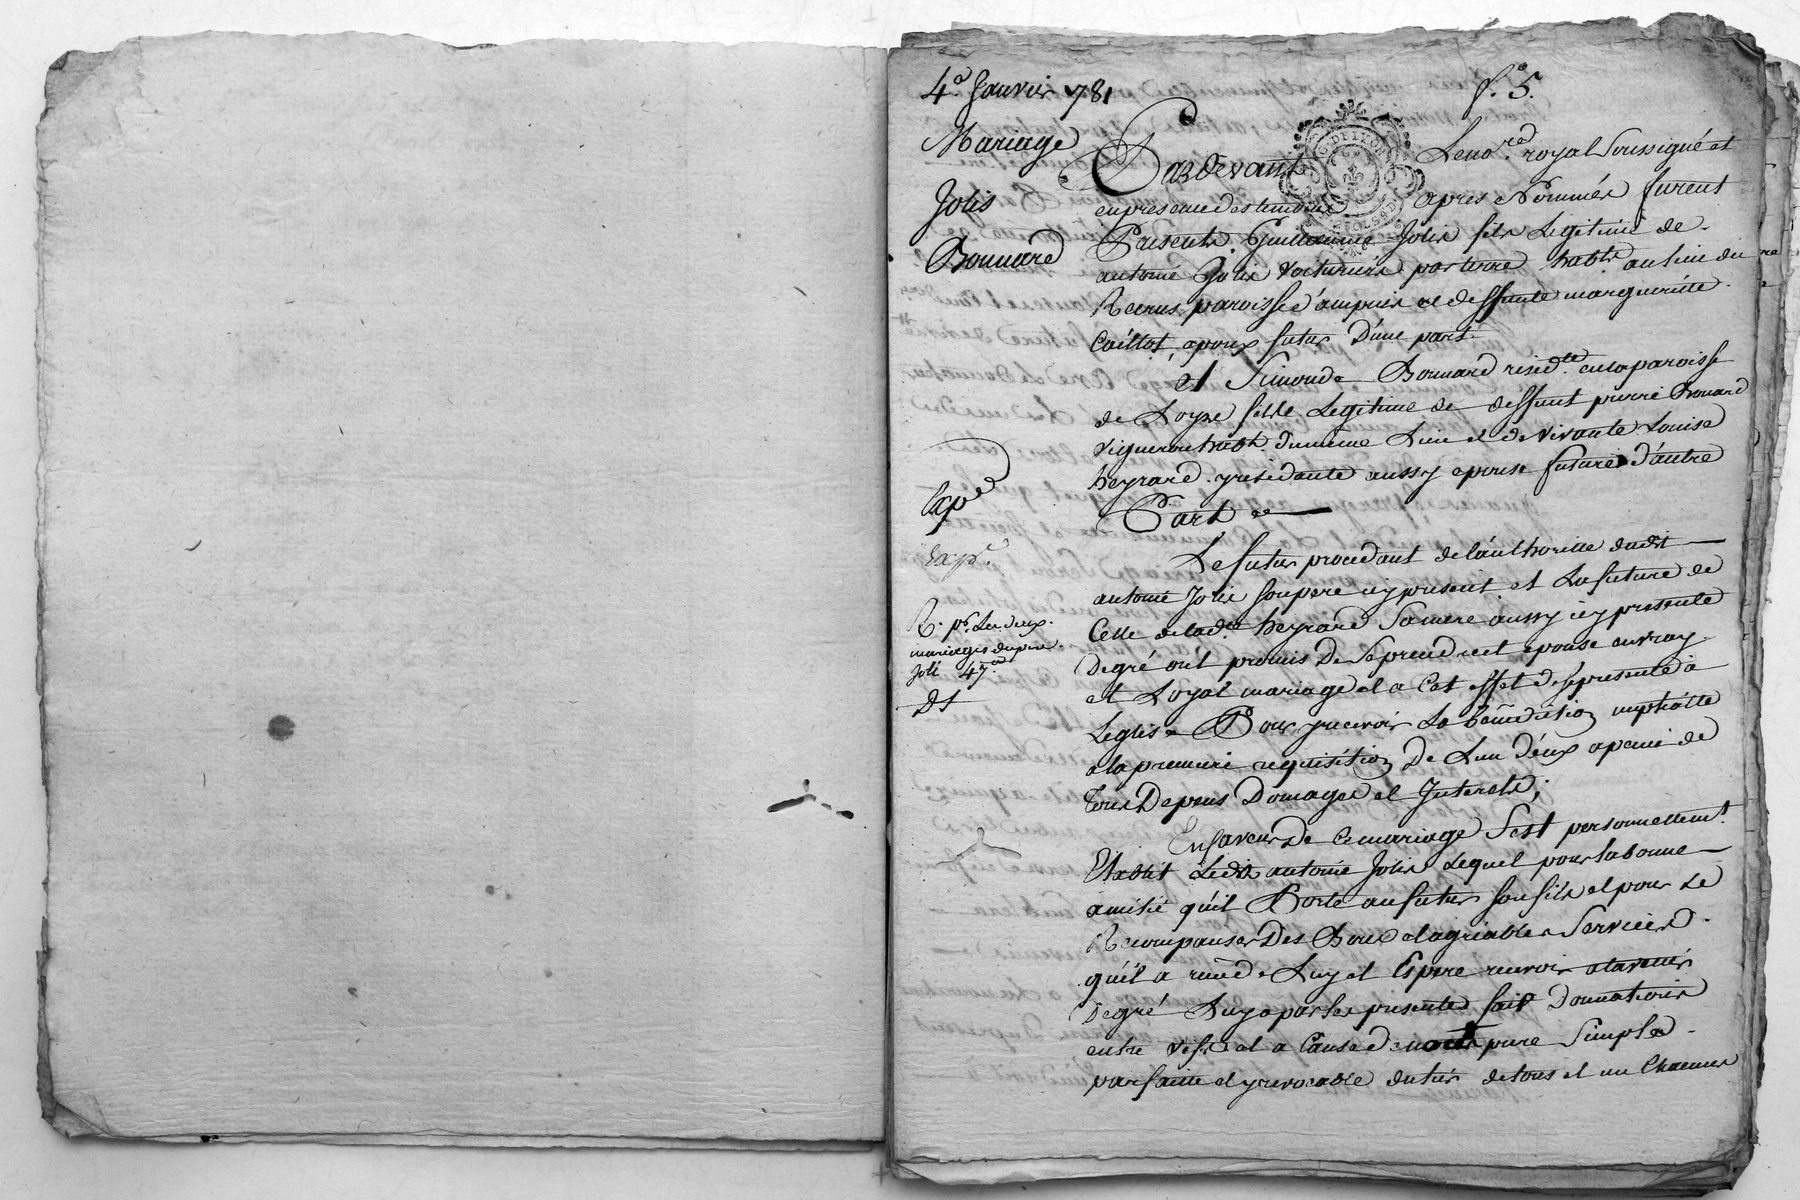 4.e Janvier 1781
f.o 5.
Mariage
Jolis
Bonnard
Expee
Exp.e
R. pr. Les deux
mariages du pere
Joli 47
DS
G. DE LYON
Pardevant Le no.re royal Soussigné et
en presence des temoins apres Nommés furent
Presents Guillaume Jolis fils Legitime de
antoine Jolis Voiturier par terre habt. au lieu du
Recrus paroisse d'ampuis et deffunte margueritte
Caillot, epoux futur D'une part
et Simonde Bonnard resid.te en la paroisse
de Loyre fille Legitime de deffunt pierre Bonard
vigneron habt. du meme Lieu et de vivante Louise
heyrard y residante aussy epouse future d'autre
Part
Le futur procedant de l'authoritte dudit
antoine Jolis son pere icy present et La future de
Celle de lad.e heyrard Sa mere aussy icy presente
Degré ont promis De Se prendre et epouse en vray
et Loyal mariage et a Cet effet de Se presente a
Leglise Pour y recevoir La benediction nuptialle
a la premiere requisition De L'un d'eux a peine de
Tous Depens Domages et Interets;
En faveur De Ce mariage S'est personnellemt.
Etablit Ledit antoine Jolis Lequel pour la bonne
amitié qu'il Porte au futur son fils et pour Le
Recompanser Des Bons et agreables Services
qu'il a rendu Luy et Espere recevoir a lavenir
Degré Luy a par les presentes fait Donnation
entre vifs et a Cause de mort pure Simple
parfaitte et yrevocable du tiers de tous et un Chacuns